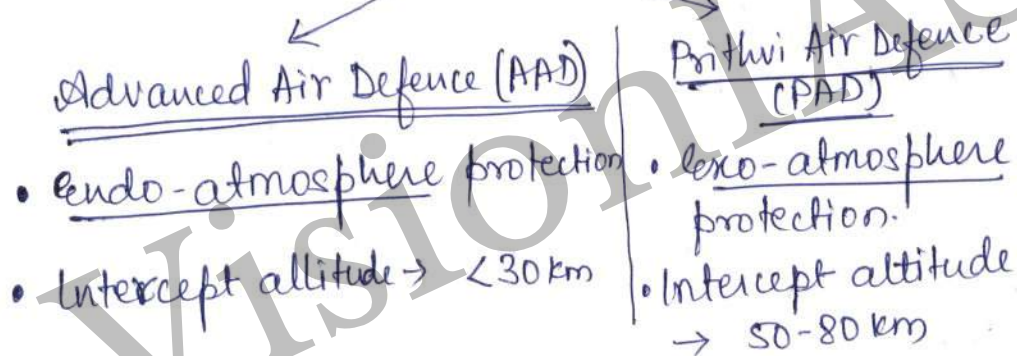 Advanced Air Defence (AAD)
• endo-atmosphere protection
• Intercept allitude → <30 km
Prithvi Air Defence
(PAD)
• exo-atmosphere
protection.
• Intercept altitude
→ 50-80 km
VisionIAS